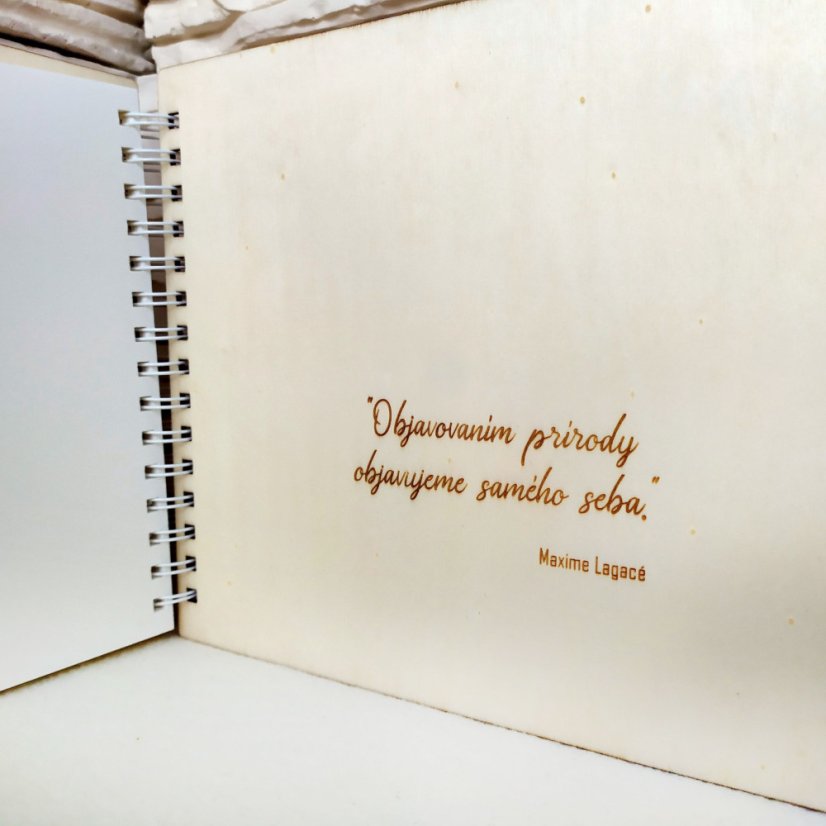 "Objavovaním prírody
objavujeme samého seba."
Maxime Lagacé